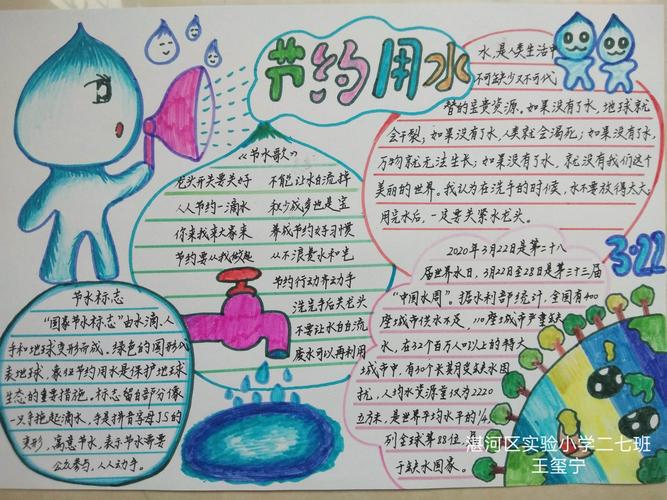 节约用水
水,是人类生活中
不可缺少又不可代
替的宝贵资源。如果没有了水,地球就
会干裂;如果没有了水,人类就会渴死;如果没有了水,
万物就无法生长;如果没有了水,就没有我们这个
美丽的世界。我认为在洗手的时候,水不要放得太大;
用完水后,一定要关紧水龙头。
《节水歌》
龙头开关要关好 不能让水白流掉
人人节约一滴水 积少成多也是宝
你来我来大家来 养成节约好习惯
节约要从我做起 从不浪费水和电
节约行动齐动手
洗完手后关龙头
不要让水自自流
废水可以再利用
3·22
2020年3月22日是第二十八
届世界水日,3月22日至28日是第三十三届
“中国水周”。据水利部统计,全国有400
座城市供水不足,110座城市严重缺
水,在32个百万人口以上的特大
城市中,有30个长期受缺水困
扰,人均水资源量仅为2220
立方米,是世界平均水平的1/4,
列全球第88位,属
于缺水国家。
节水标志
“国家节水标志”由水滴、人
手和地球变形而成。绿色的圆形代
表地球,象征节约用水是保护地球
生态的重要措施。标志留白部分像
一只手托起一滴水,手是拼音字母JS的
变形,寓意节水,表示节水需要
公众参与,人人动手。
湛河区实验小学二七班
王玺宁